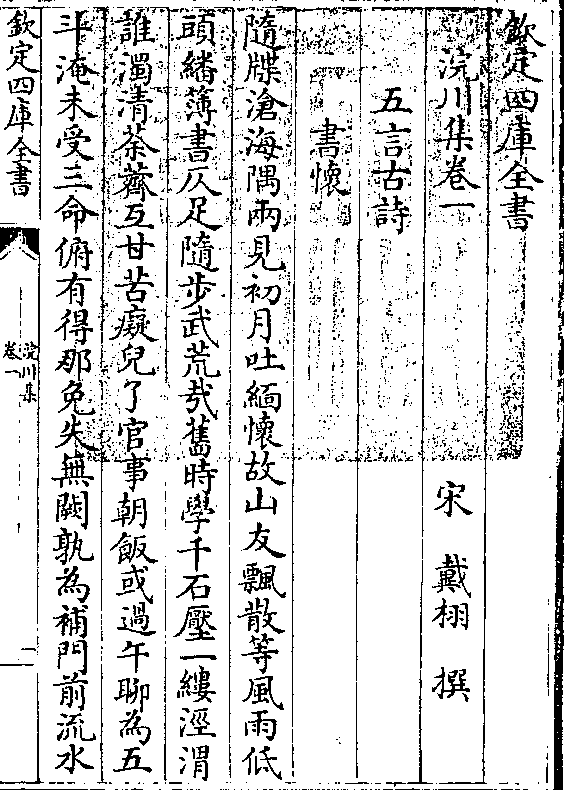 欽定四庫全書
浣川集卷一
宋 戴栩 撰
五言古詩
書懷
隨牒滄海隅兩見初月吐緬懷故山友飄散等風雨低
頭繙簿書仄足隨步武荒哉舊時學千石壓一縷涇渭
誰濁清荼薺互甘苦癡兒了官事朝飯或過午聊為五
斗淹未受三命俯有得那免失無闕孰為補門前流水
欽定四庫全書
浣川集
卷一
一